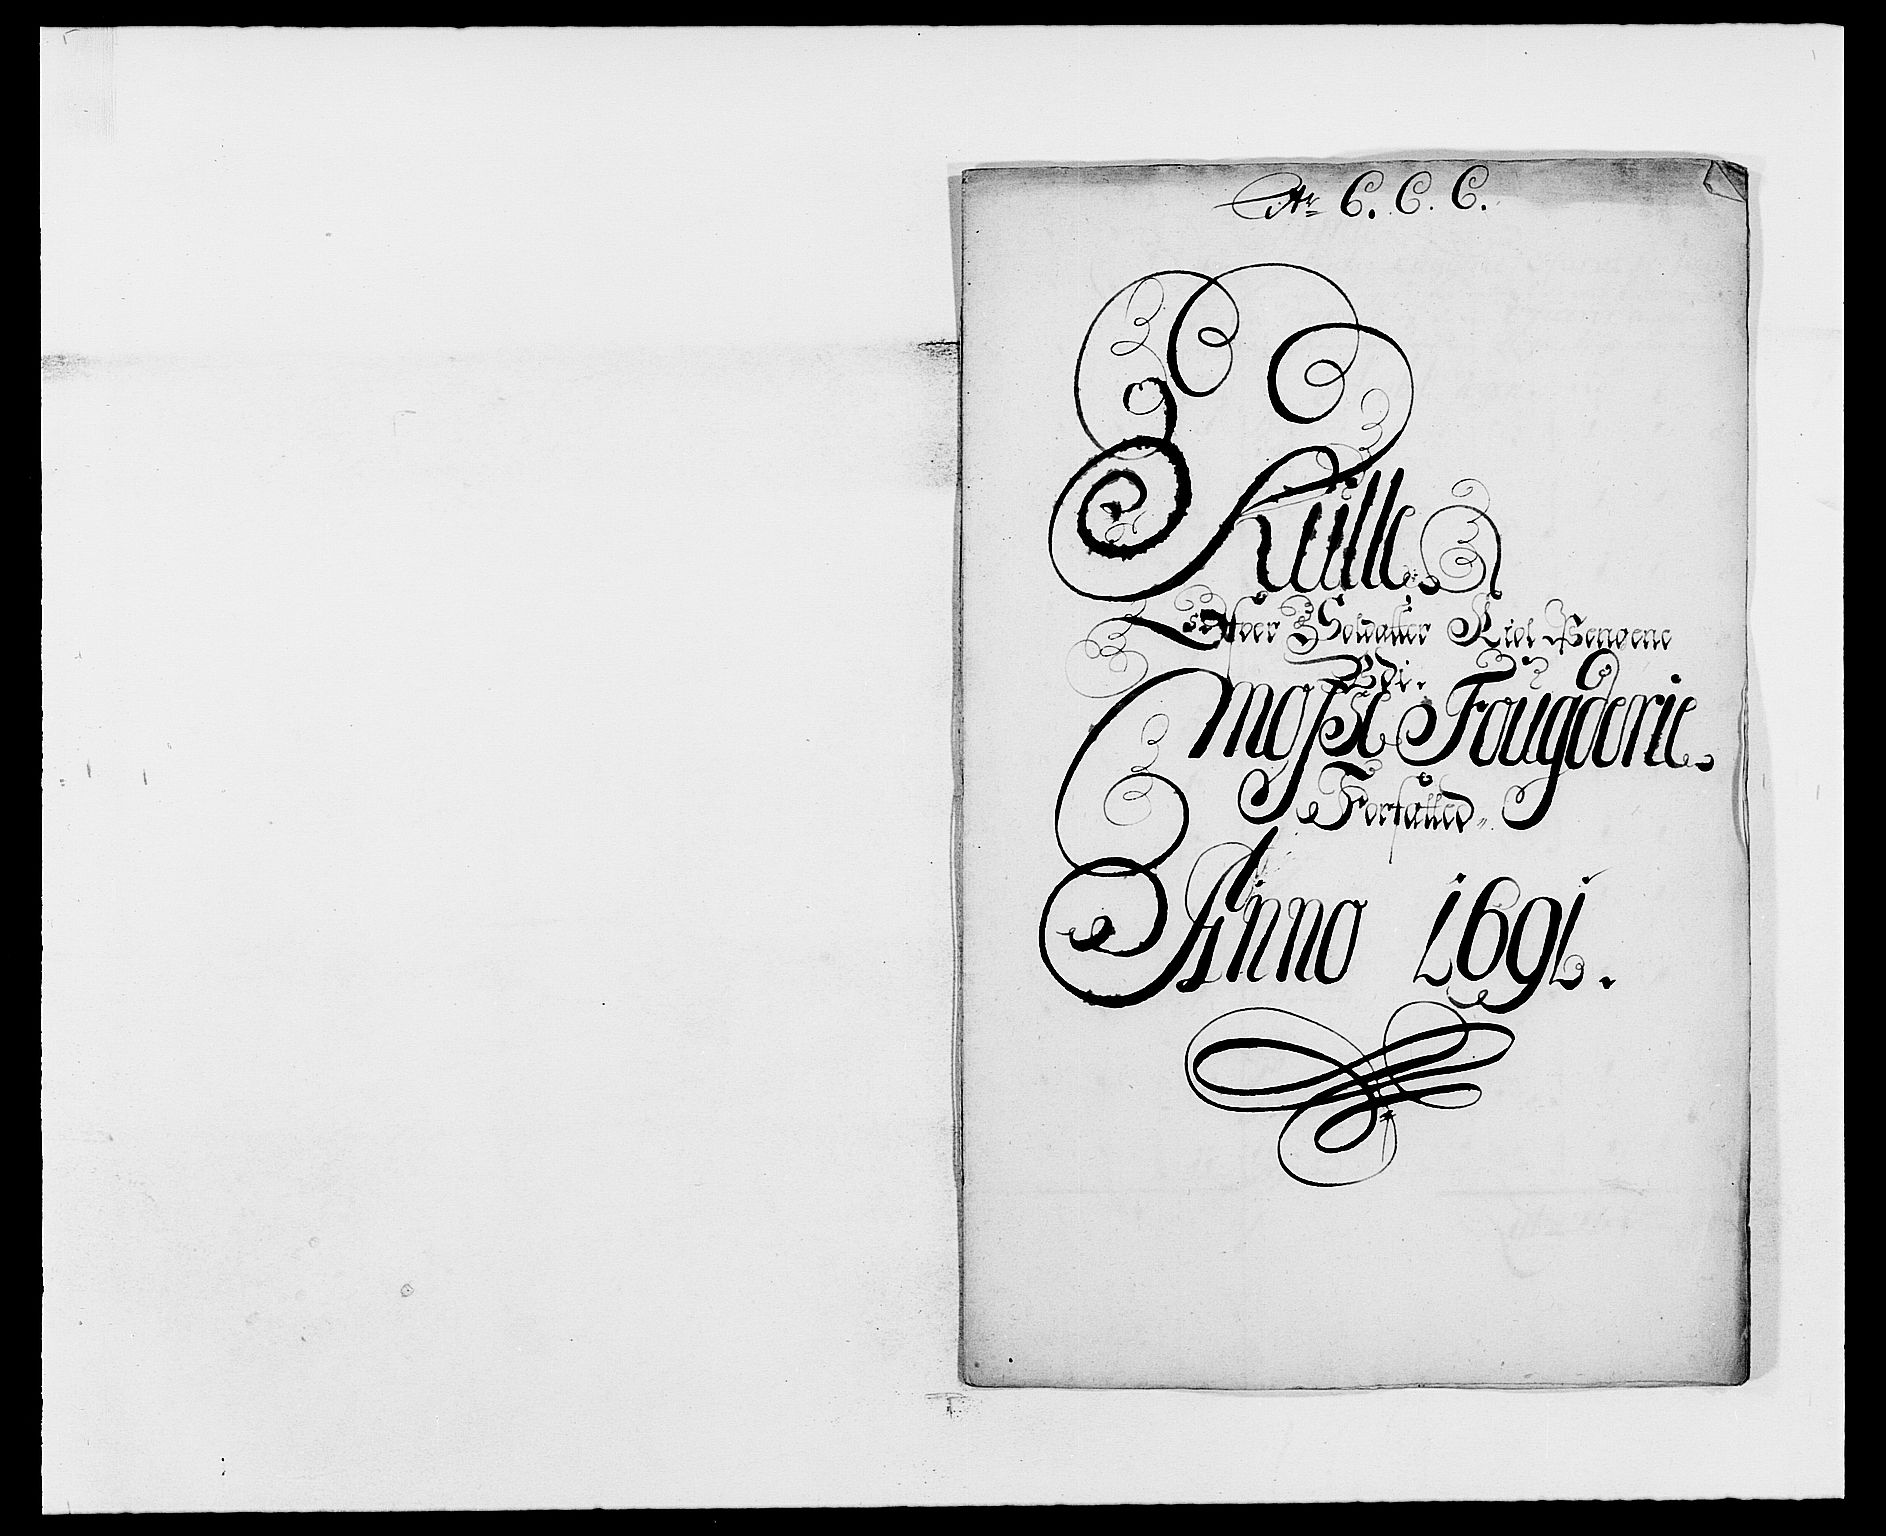 Litr C. C. C.
Rulle.
Ofver Soldatter Kiol Pengene
Udi.
Mosse Fougderie.
Forfatted
Anno 1691.